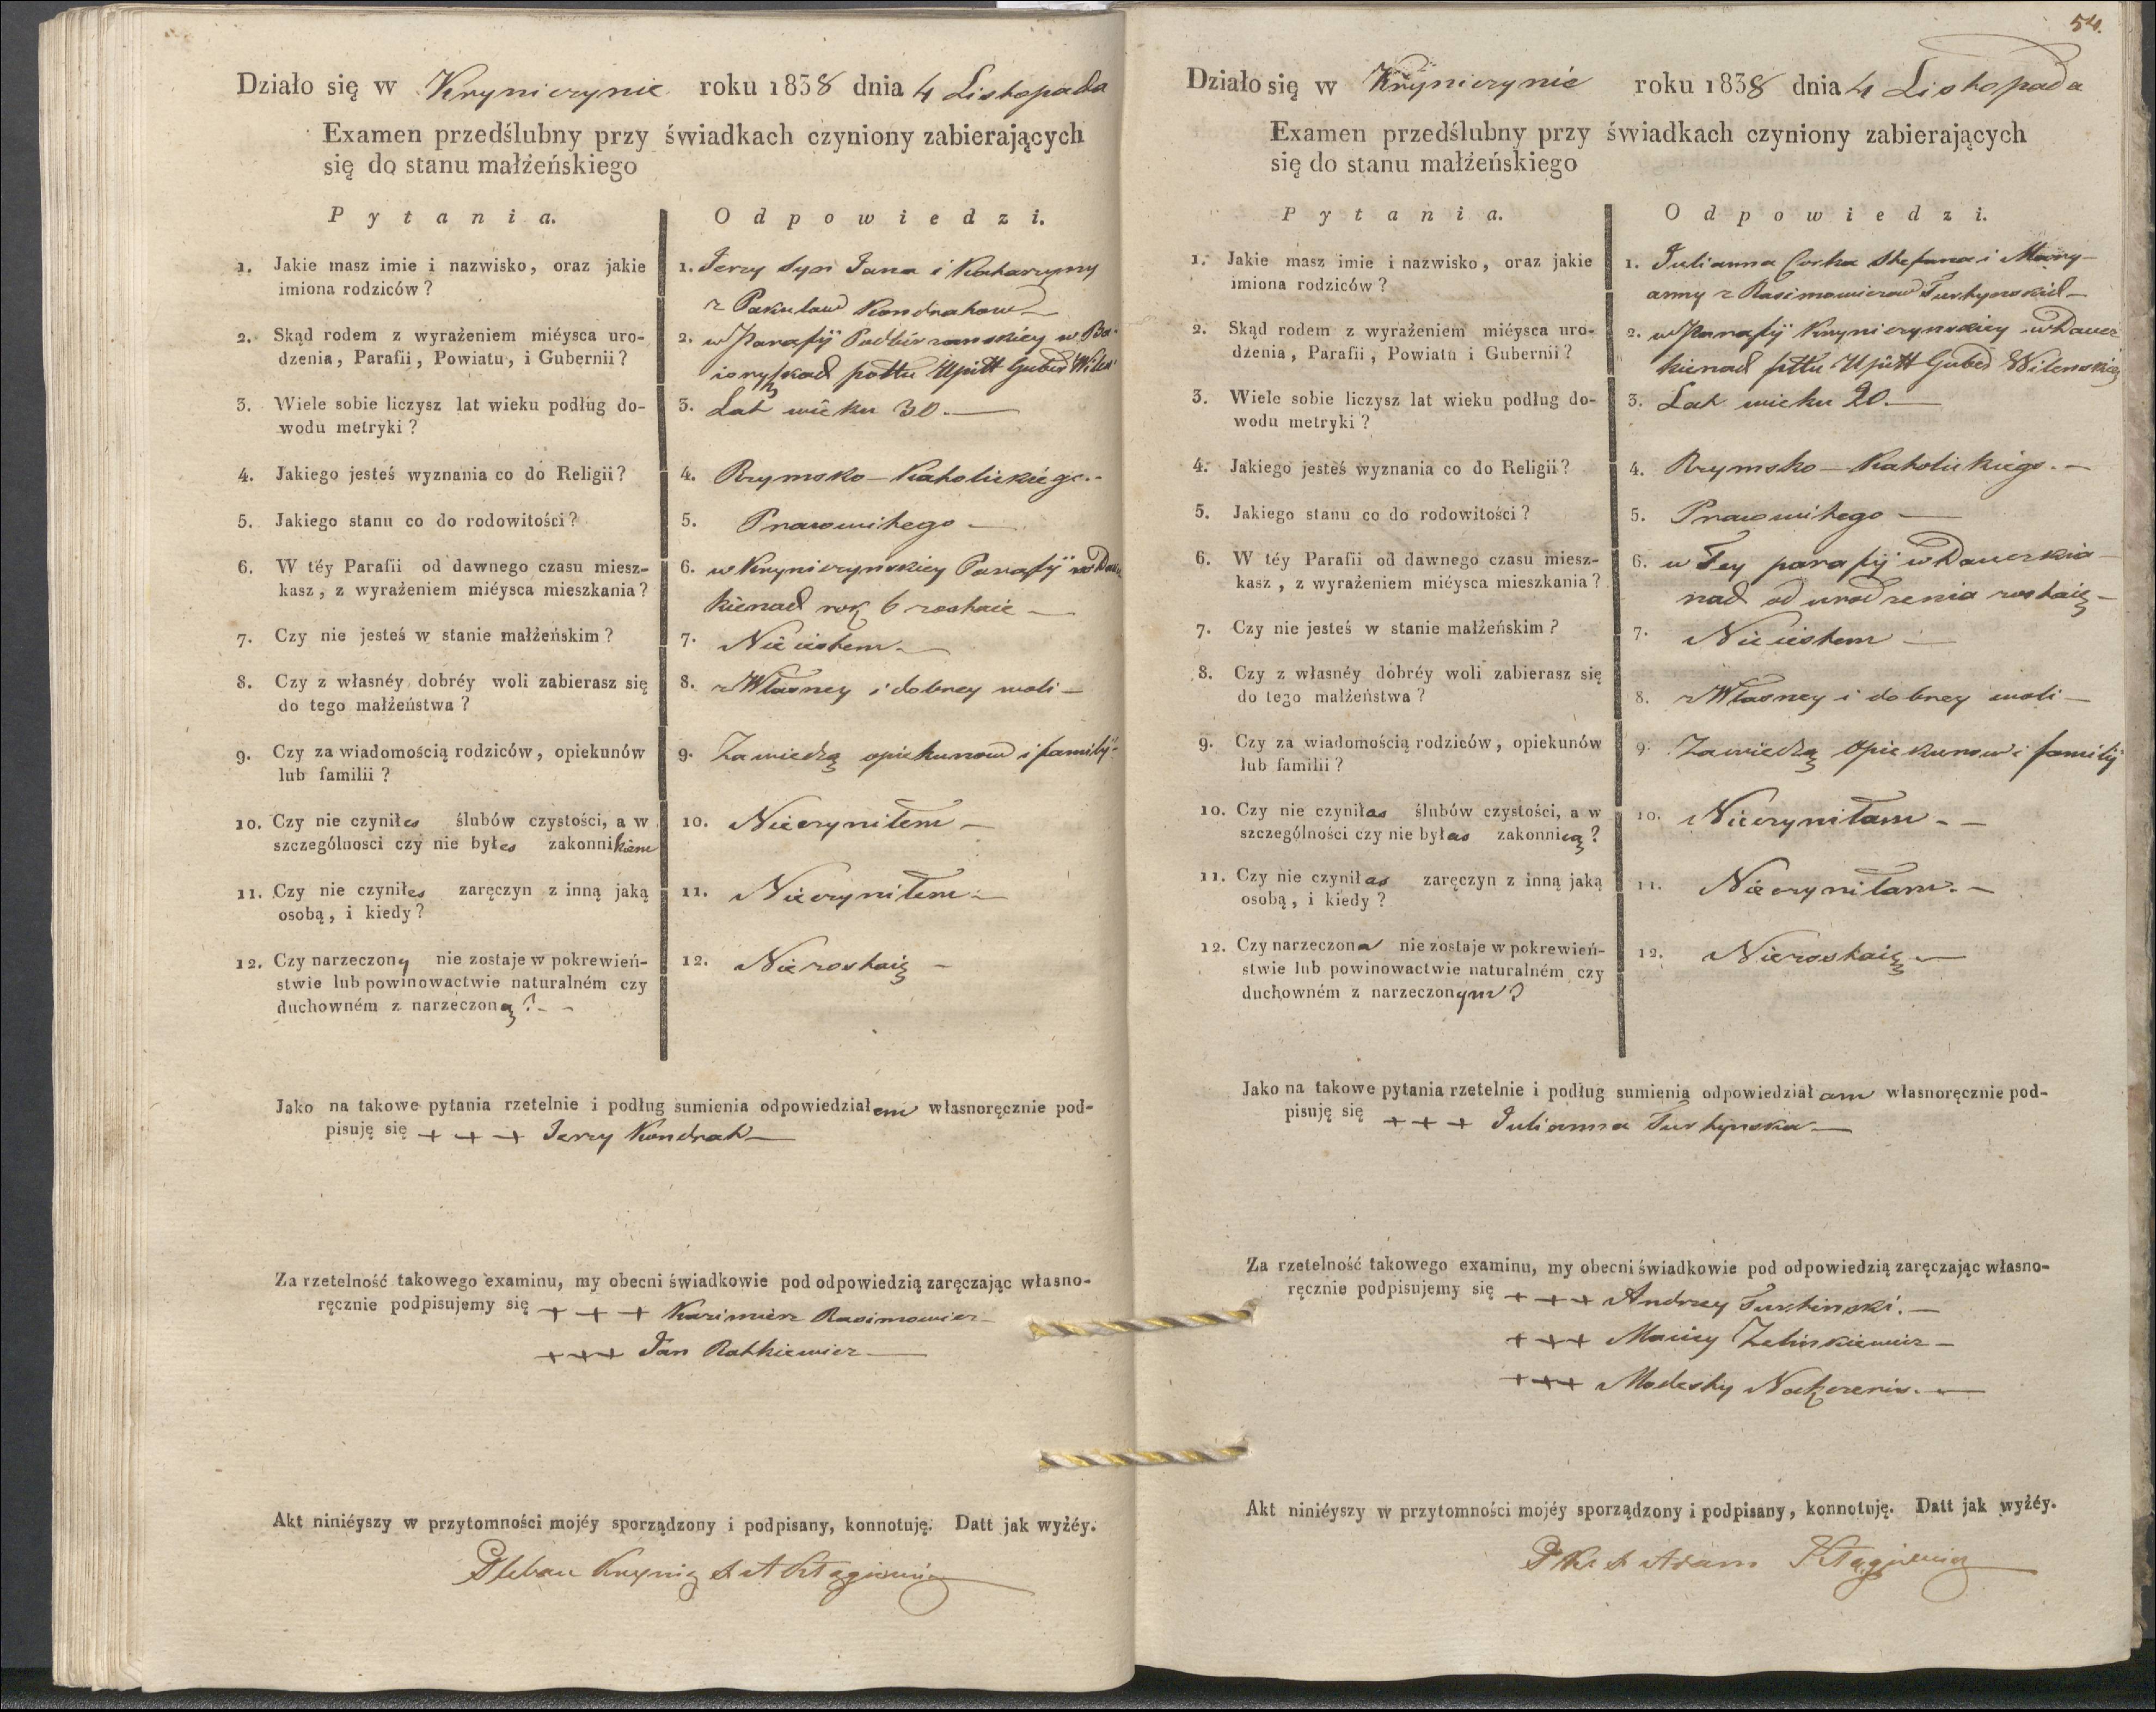 Działo się w Kryniczynie roku 1838 dnia 4 Listopada
Examen przedślubny przy świadkach czyniony zabierających
się do stanu małżeńskiego
Pytania.
Odpowiedzi.
1. Jakie masz imie i nazwisko, oraz jakie
imiona rodziców?
1. Jerzy Syn Jana i Katarzyny
z Pakulow Kondratow
2. Skąd rodem z wyrażeniem miéysca uro-
dzenia, Parafii, Powiatu, i Gubernii?
2. w Parafij Podbirzanskiey w
pottu Upitt Guber Wilen
3. Wiele sobie liczysz lat wieku podług do-
wodu metryki?
3. Lat wieku 30.
4. Jakiego jesteś wyznania co do Religii?
4. Rzymsko-Katolickiégo.
5. Jakiego stanu co do rodowitości?
5. Prawowitego
6. W téy Parafii od dawnego czasu miesz-
kasz, z wyrażeniem miéysca mieszkania?
6. w Kryniczynskiey Parafij w
kienach rok 6 zostaie
7. Czy nie jesteś w stanie małżeńskim?
7. Nie iestem
8. Czy z własnéy dobréy woli zabierasz się
do tego małżeństwa?
8. z Własney i dobrey woli
9. Czy za wiadomością rodziców, opiekunów
lub familii?
9. Zawiedzą opiekunow i familij
10. Czy nie czyniłes ślubów czystości, a w
szczególnosci czy nie byłes zakonnikiem
10. Nieczyniłem
11. Czy nie czyniłes zaręczyn z inną jaką
osobą, i kiedy?
11. Nieczyniłem
12. Czy narzeczony nie zostaje w pokrewień-
stwie lub powinowactwie naturalném czy
duchowném z narzeczoną?
12. Niezostaię
Jako na takowe pytania rzetelnie i podług sumienia odpowiedziałem własnoręcznie pod-
pisuję się + + + Jerzy Kondrat
Za rzetelność takowego examinu, my obecni świadkowie pod odpowiedzią zaręczając własno-
ręcznie podpisujemy się + + + Kazimierz Rasimowicz
+++ Jan Ratkiewicz
Akt niniéyszy w przytomności mojéy sporządzony i podpisany, konnotuję. Datt jak wyżéy.
Pleban
54.
Działo się w Kryniczynie roku 1838 dnia 4 Listopada
Examen przedślubny przy świadkach czyniony zabierających
się do stanu małżeńskiego
Pytania.
Odpowiedzi.
1. Jakie masz imie i nazwisko, oraz jakie
imiona rodziców?
1. Julianna Corka Stefana i Mary-
anny z Rasimowiczow
2. Skąd rodem z wyrażeniem miéysca uro-
dzenia, Parafii, Powiatu i Gubernii?
2. w Parafij Kryniczynskiey w Daucz
kienach pttu Upitt Guber Wilenskiey
3. Wiele sobie liczysz lat wieku podług do-
wodu metryki?
3. Lat wieku 20.
4. Jakiego jesteś wyznania co do Religii?
4. Rzymsko-Katolickiego.
5. Jakiego stanu co do rodowitości?
5. Prawowitego
6. W téy Parafii od dawnego czasu miesz-
kasz, z wyrażeniem miéysca mieszkania?
6. w Tey parafij w Dauczkia
nach od urodzenia zostaię
7. Czy nie jesteś w stanie małżeńskim?
7. Nie iestem
8. Czy z własnéy dobréy woli zabierasz się
do tego małżeństwa?
8. z Własney i dobrey woli
9. Czy za wiadomością rodziców, opiekunów
lub familii?
9. Zawiedzą Opiekunow i familij
10. Czy nie czyniłas ślubów czystości, a w
szczególności czy nie byłas zakonnicą?
10. Nieczyniłam
11. Czy nie czyniłas zaręczyn z inną jaką
osobą, i kiedy?
11. Nieczyniłam.
12. Czy narzeczona nie zostaje w pokrewień-
stwie lub powinowactwie naturalném czy
duchowném z narzeczonym?
12. Niezostaię
Jako na takowe pytania rzetelnie i podług sumienia odpowiedziałam własnoręcznie pod-
pisuję się + + + Julianna
Za rzetelność takowego examinu, my obecni świadkowie pod odpowiedzią zaręczając własno-
ręcznie podpisujemy się + + + Andrzey
+++ Maciey
+++ Modesty
Akt niniéyszy w przytomności mojéy sporządzony i podpisany, konnotuję. Datt jak wyżéy.
Adam